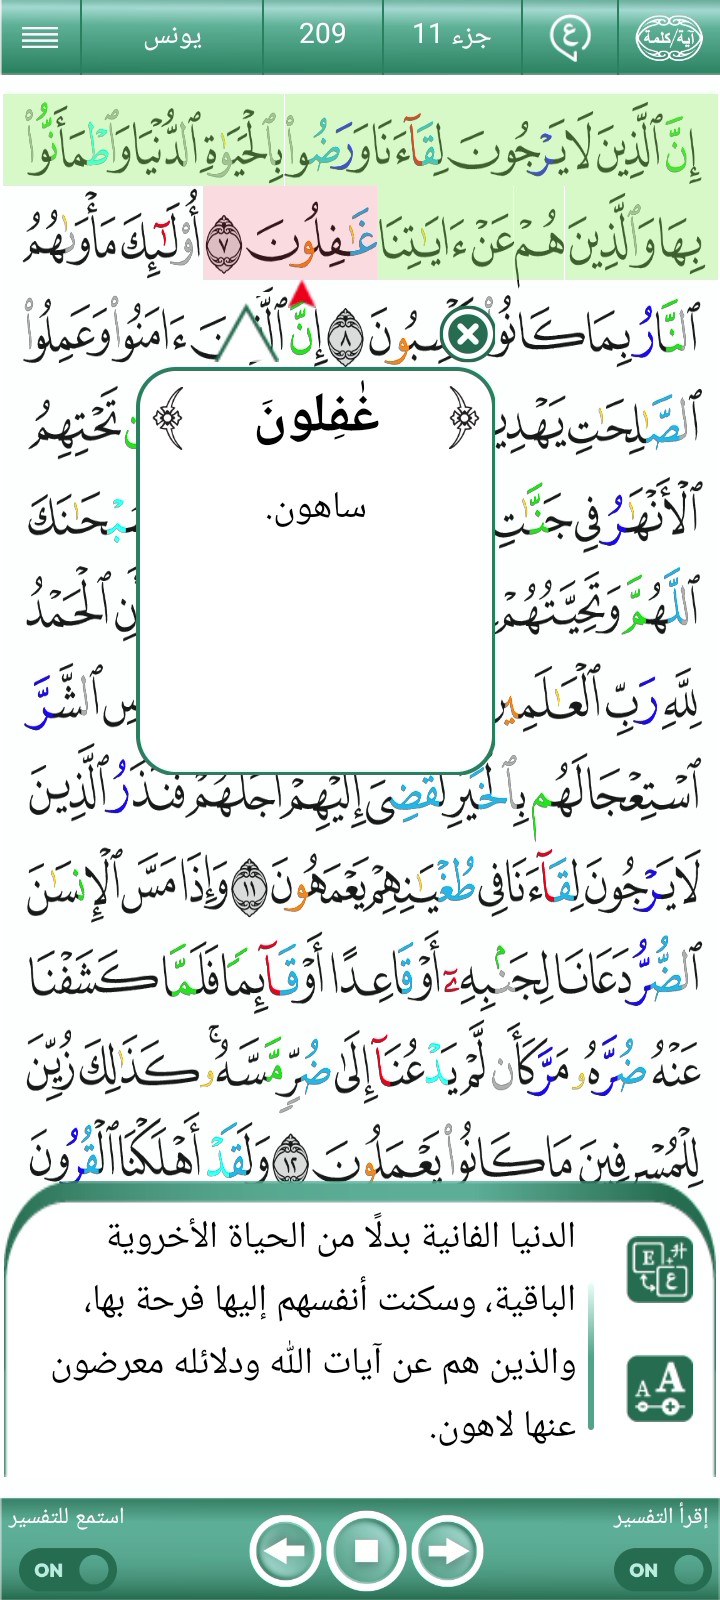 آية/كلمة
ع
جزء 11
209
يونس
إِنَّ ٱلَّذِينَ لَا يَرْجُونَ لِقَآءَنَا وَرَضُوا۟ بِٱلْحَيَوٰةِ ٱلدُّنْيَا وَٱطْمَأَنُّوا۟
بِهَا وَٱلَّذِينَ هُمْ عَنْ ءَايَـٰتِنَا غَـٰفِلُونَ ٧ أُو۟لَـٰٓئِكَ مَأْوَىٰهُمُ
ٱلنَّارُ بِمَا كَانُوا۟ يَكْسِبُونَ ٨ إِنَّ ٱلَّذِينَ ءَامَنُوا۟ وَعَمِلُوا۟
غَٰفِلونَ
ساهون.
ٱلصَّـٰلِحَـٰتِ يَهْدِي تَحْتِهِمُ
ٱلْأَنْهَـٰرُ فِى جَنَّـٰتِ
ٱللَّهُمَّ وَتَحِيَّتُهُمْ أَنِ ٱلْحَمْدُ
لِلَّهِ رَبِّ ٱلْعَـٰلَمِينَ ٱلشَّرَّ
ٱسْتِعْجَالَهُم بِٱلْخَيْرِ لَقُضِىَ إِلَيْهِمْ أَجَلُهُمْ فَنَذَرُ ٱلَّذِينَ
لَا يَرْجُونَ لِقَآءَنَا فِى طُغْيَـٰنِهِمْ يَعْمَهُونَ ١١ وَإِذَا مَسَّ ٱلْإِنسَـٰنَ
ٱلضُّرُّ دَعَانَا لِجَنۢبِهِۦٓ أَوْ قَاعِدًا أَوْ قَآئِمًا فَلَمَّا كَشَفْنَا
عَنْهُ ضُرَّهُۥ مَرَّ كَأَن لَّمْ يَدْعُنَآ إِلَىٰ ضُرٍّ مَّسَّهُۥ ۚ كَذَٰلِكَ زُيِّنَ
لِلْمُسْرِفِينَ مَا كَانُوا۟ يَعْمَلُونَ ١٢ وَلَقَدْ أَهْلَكْنَا ٱلْقُرُونَ
الدنيا الفانية بدلًا من الحياة الأخروية
الباقية، وسكنت أنفسهم إليها فرحة بها،
والذين هم عن آيات الله ودلائله معرضون
عنها لاهون.
E ع
A A
إقرأ التفسير
استمع للتفسير
ON
ON